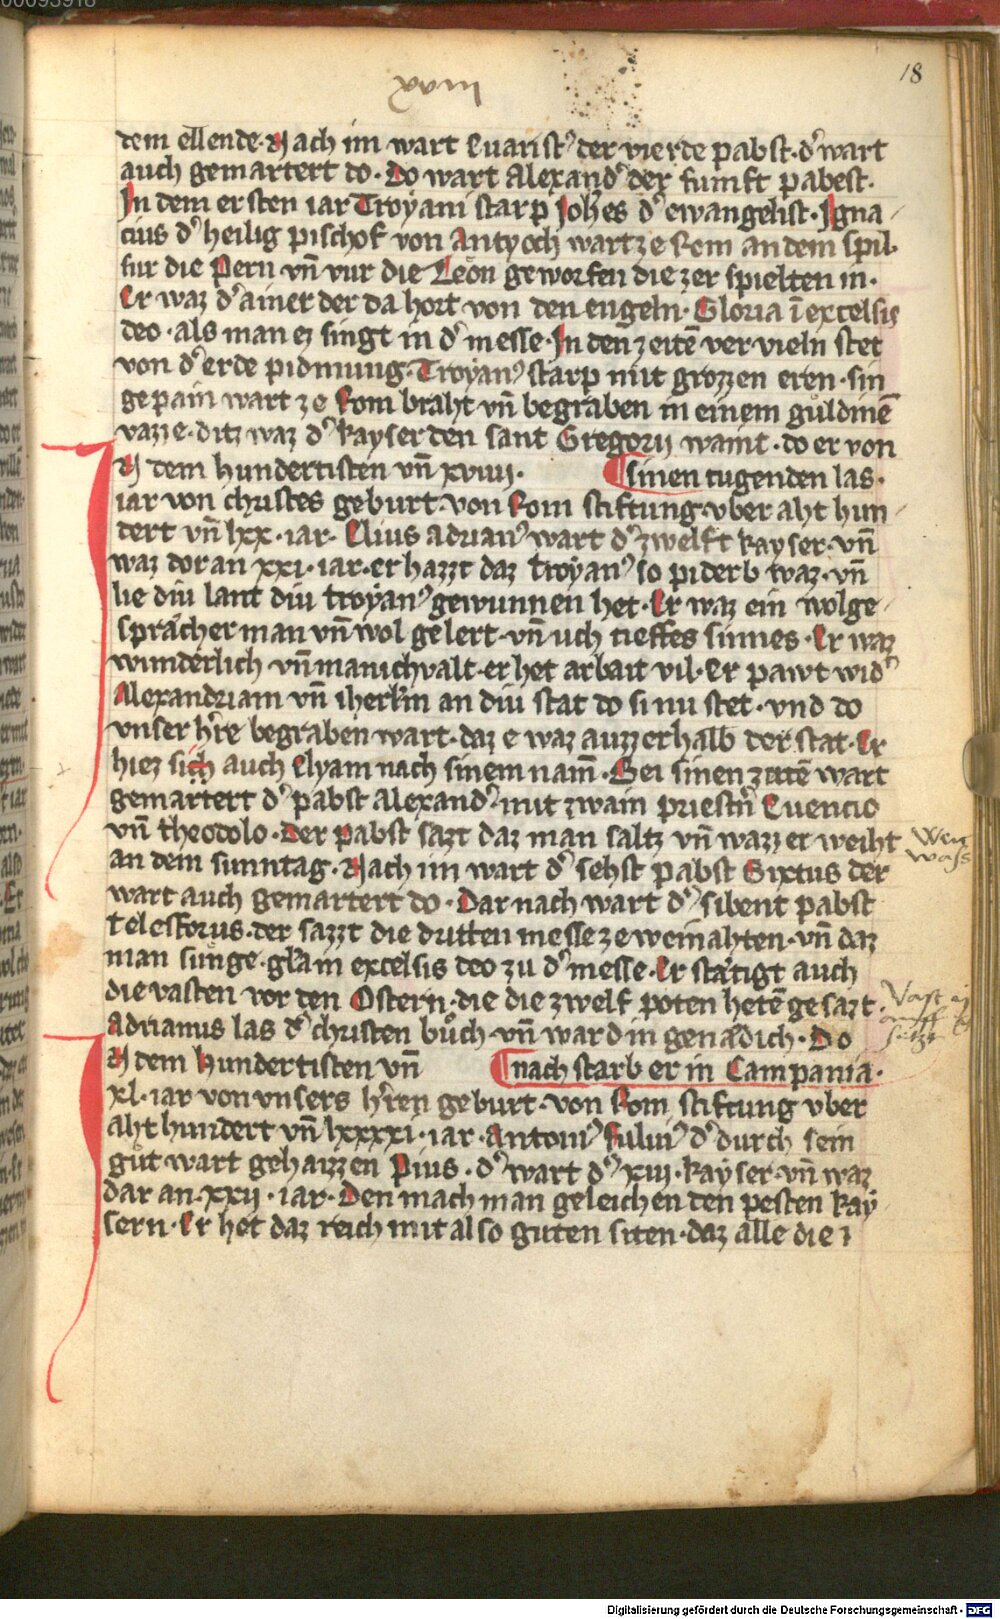 00093918
18
xviii
dem ellende · Nach im wart Euaristꝰ der vierde pabst · d᾽ wart
auch gemartert do · Do wart Alexand᾽ der funft pabest ·
In dem ersten iar Troyani starp Joh̄es d᾽ ewangelist · Igna-
cius d᾽ heilig pischof von Antyoch wart ze Rom an dem spil ·
fur die Pern vn̄ vur die Leön geworfen die zer spielten in ·
Er waz d᾽ ainer der da hort von den engeln · Gloria ī excelsis
deo · als man ez singt in d᾽ messe · In den zeitē ver vieln stet
von d᾽ erde pidmung · Troyanꝰ starp mit grozzen eren · sin
gepain wart ze Rom braht vn̄ begraben in einem guͤldinē
vazze · ditz waz d᾽ kayser den sant Gregorij waint · do er von
¶ sinen tugenden las ·
IN dem hundertisten vn̄ xviiij ·
iar von christes geburt · von Rom stiftung vber aht hun-
dert vn̄ lxx · iar · Elius adrianꝰ wart d᾽ zwelft kayser · vn̄
waz dor an xxi · iar · er hazzt daz troyanꝰ so piderb waz · vn̄
lie diu lant diu troyanꝰ gewunnen het · Er waz ein wolge-
sprächer man vn̄ wol gelert · vn̄ uch tieffes sinnes · Er waz
wunderlich vn̄ manichvalt · er het arbait vil · Er pawt wid᾽
Alexandriam vn̄ iherl̄m an diu stat do si nu stet · vnd do
vnser h᾽re begraben wart · daz e waz auzzerhalb der stat · Er
hiez sich auch Elyam nach sinem nam̄ · Bei sinen zeitē wart
gemartert d᾽ pabst Alexand᾽ mit zwain priestn̄ Euencio
vn̄ theodolo · Der pabst sazt daz man saltz vn̄ wazzer weiht
an dem sunntag · Nach im wart d᾽ sehst pabst Sixtus der
wart auch gemartert do · Dar nach wart d᾽ sibent pabst
telesforus · der sazzt die dritten messe ze weinahten · vn̄ daz
man sünge · gl̄a in excelsis deo zu d᾽ messe · Er stätigt auch
die vasten vor den Ostern · die die zwelf poten hetē gesazt ·
Adrianus las d᾽ christen buͦch · vn̄ ward in genädich · Do
¶ nach starb er in Campania ·
IN dem hundertisten vn̄
xl · iar von vnsers h᾽ren geburt · von Rom stiftung vber
aht hundert vn̄ lxxxxi · iar · Antoniꝰ fuluiꝰ d᾽ durch sein
guͤt wart gehaizzen Pius · d᾽ wart d᾽ xiii · kayser · vn̄ waz
dar an · xxij · iar · Den mach man geleichen den pesten kay-
sern · Er het daz reich mit also guten siten · daz alle die i
Wei
wass
Vast
auff
Digitalisierung gefördert durch die Deutsche Forschungsgemeinschaft - DFG